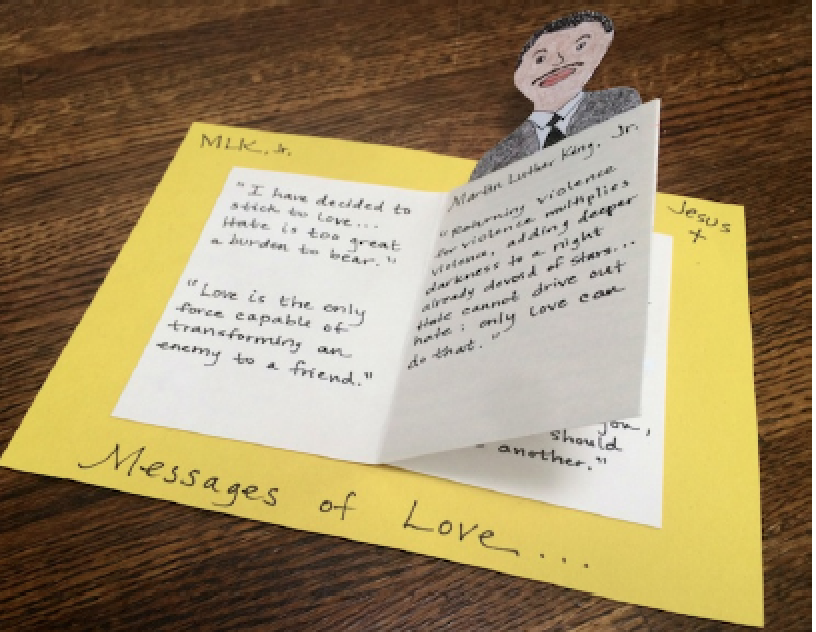 MLK, Jr.
"I have decided to
stick to love...
Hate is too great
a burden to bear."
"Love is the only
force capable of
transforming an
enemy to a friend."
Martin Luther King, Jr.
"Returning violence
for violence multiplies
violence, adding deeper
darkness to a night
already devoid of stars...
Hate cannot drive out
hate; only love can
do that."
Jesus
you,
should
another."
Messages of Love...